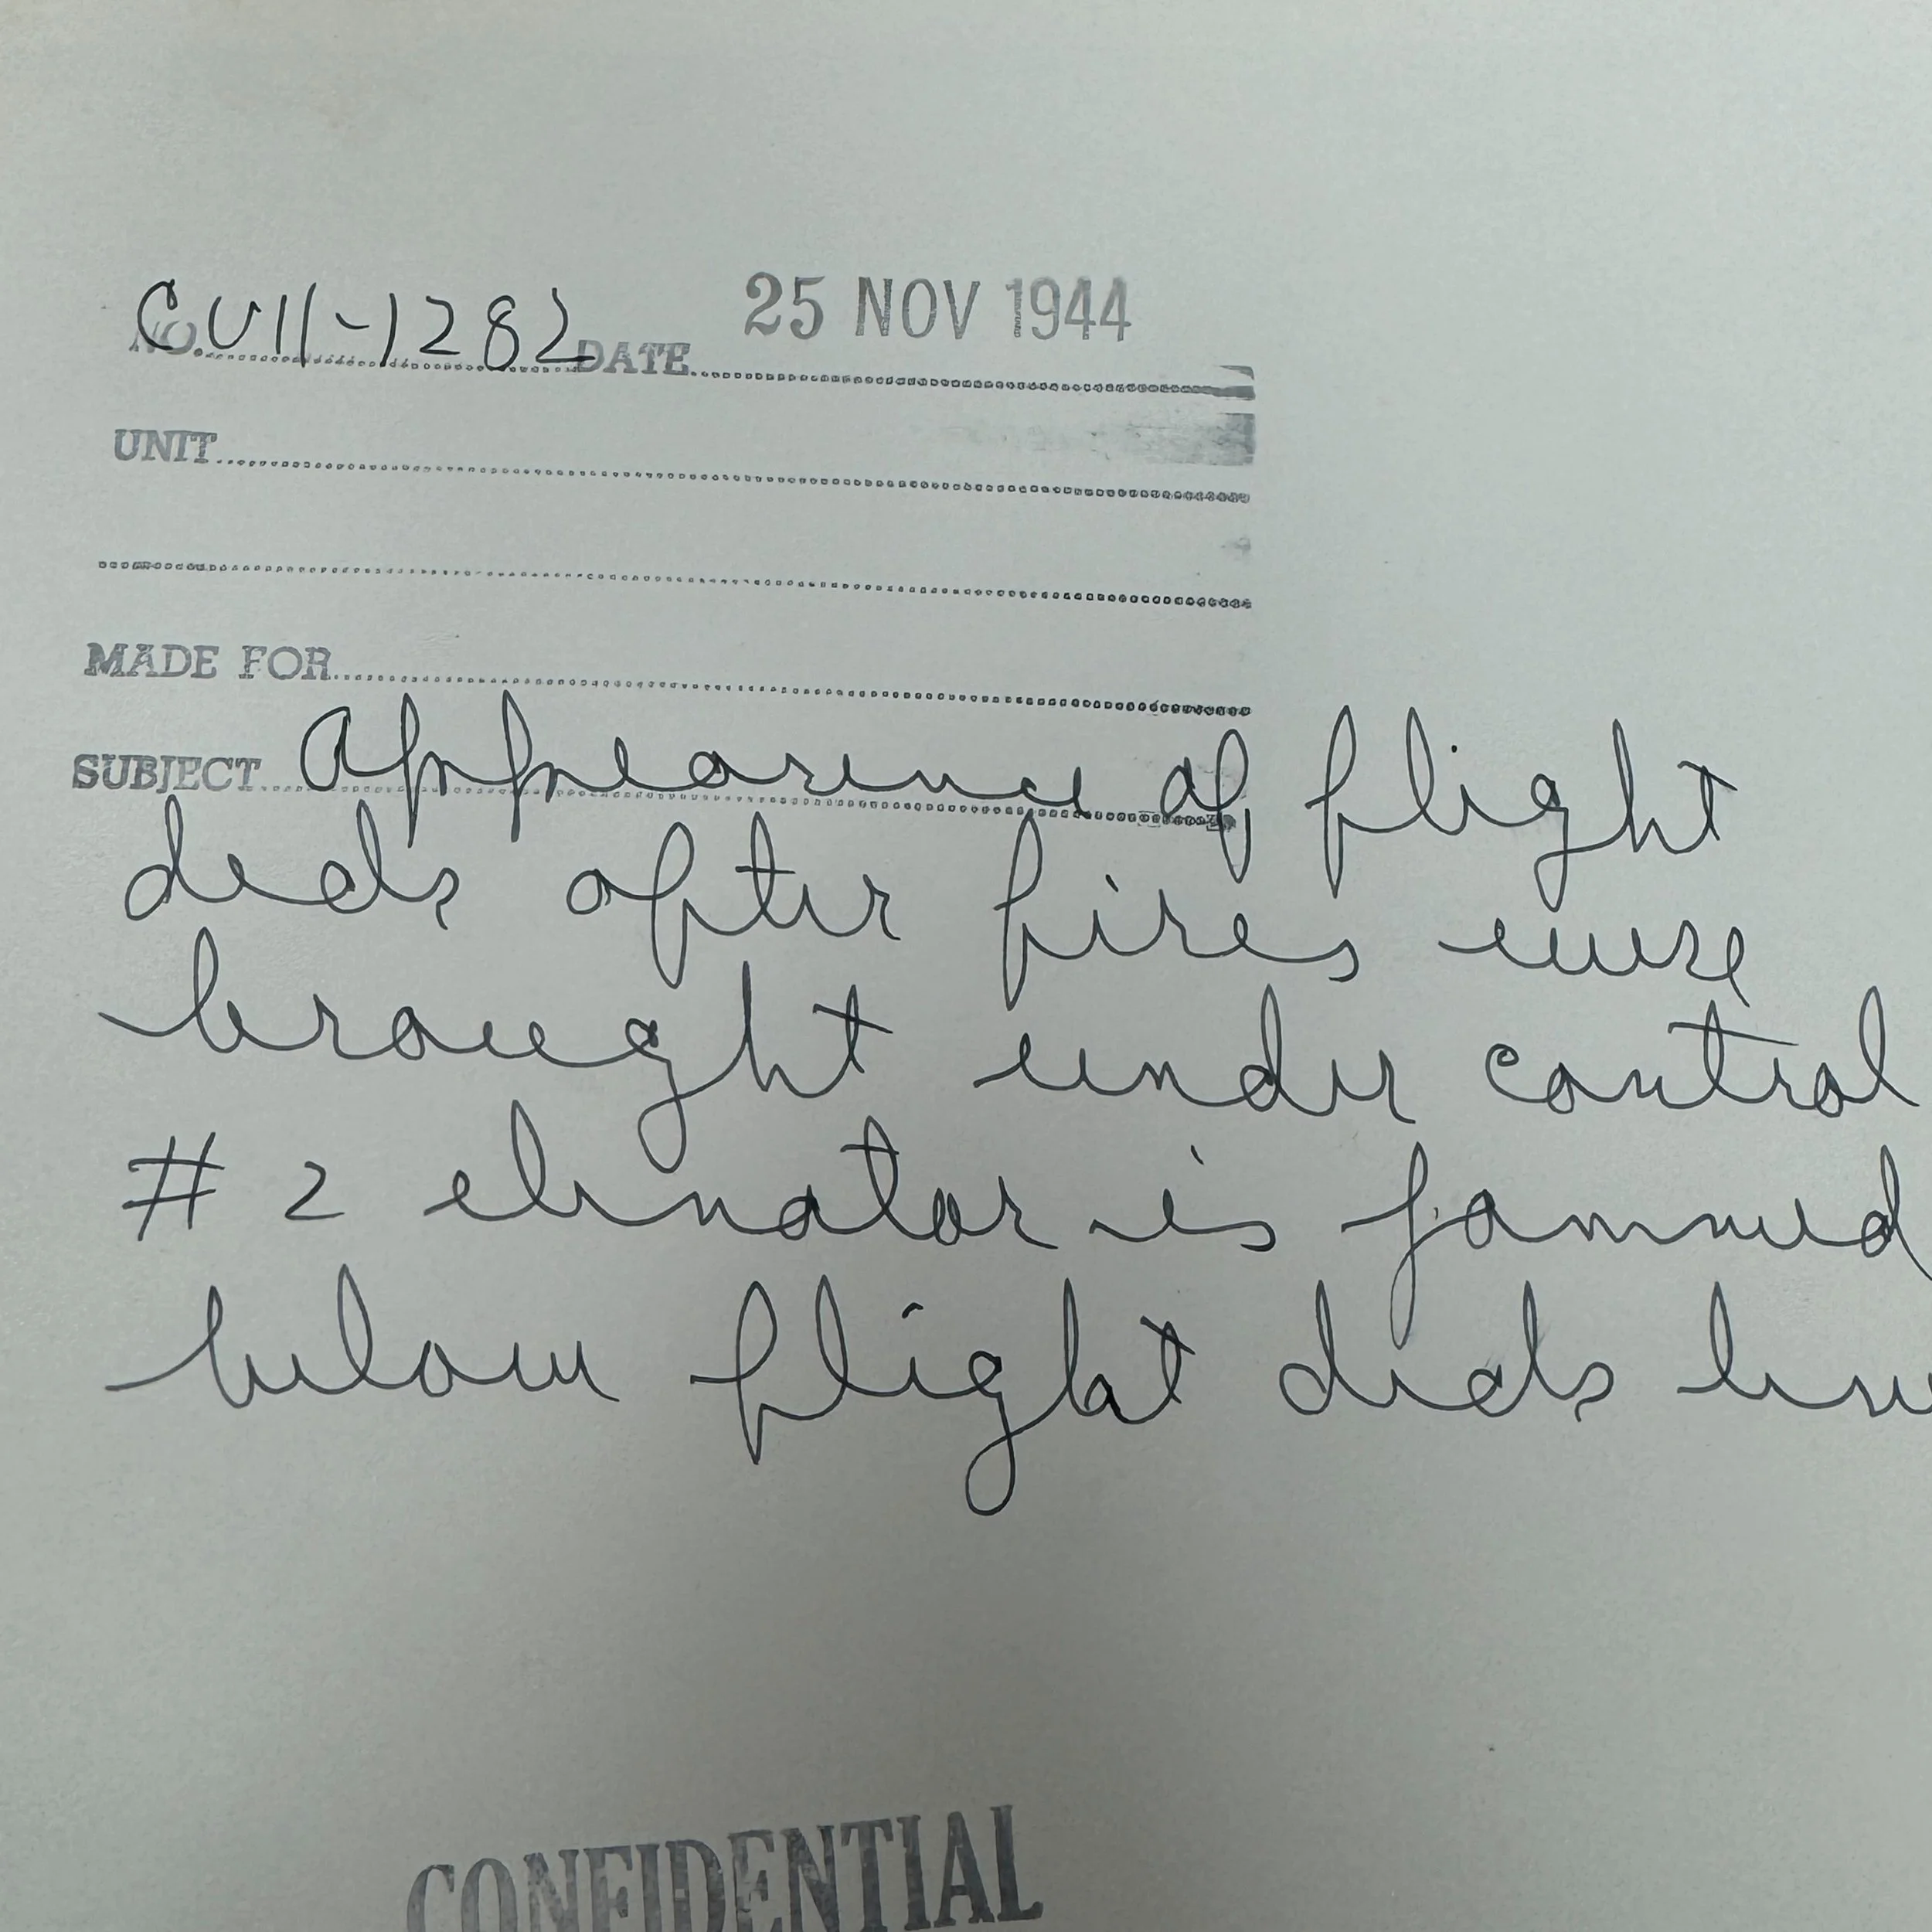 NO. CV11-1282 DATE 25 NOV 1944
UNIT
MADE FOR
SUBJECT Appearance of flight
deck after fires were
brought under control
# 2 elevator is jammed
below flight deck
CONFIDENTIAL